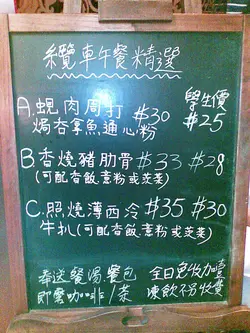 纜車午餐精選
學生價
A. 蜆肉周打 $30 $25
焗吞拿魚通心粉
B 香燒豬肋骨 $33 $28
(可配香飯.意粉或茨菜)
C. 照燒薄西冷 $35 $30
牛扒 (可配香飯.意粉或茨菜)
奉送餐湯餐包 全日免收加壹
即磨咖啡/茶 凍飲不另收費